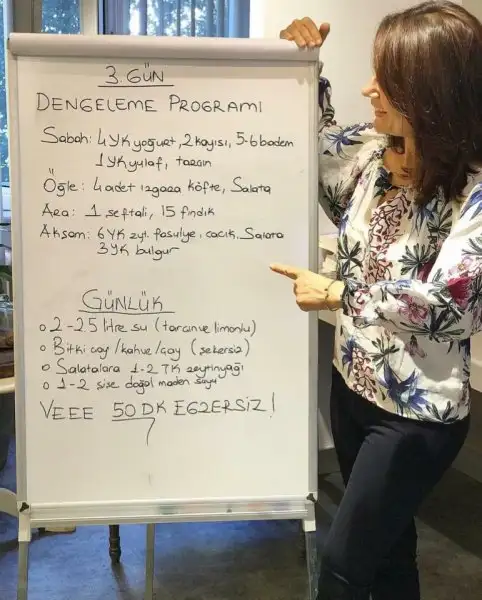 3. GÜN
DENGELEME PROGRAMI
Sabah: 4 YK yoğurt, 2 kayısı, 5-6 badem
1 YK yulaf, tarçın
Öğle: 4 adet ızgara köfte, Salata
Ara: 1 şeftali, 15 fındık
Akşam: 6 YK zyt. fasulye, cacık, Salata
3 YK bulgur
GÜNLÜK
o 2-2.5 litre su (tarçın ve limonlu)
o Bitki çay / kahve / çay (şekersiz)
o Salatalara 1-2 TK zeytinyağı
o 1-2 şişe doğal maden suyu
VEEE 50 DK EGZERSİZ!